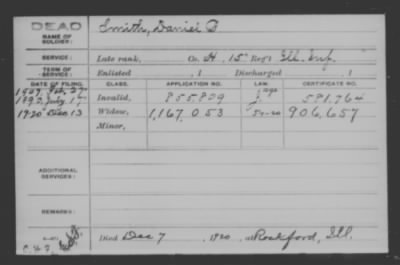 DEAD
NAME OF SOLDIER:
Smith, Daniel
SERVICE:
Late rank, Co. H, 15 Reg't Ill. Inf.
TERM OF SERVICE:
Enlisted , 1 Discharged , 1
DATE OF FILING. CLASS. APPLICATION NO. LAW. CERTIFICATE NO.
Invalid, 855,829 581,764
1920 Dec 13 Widow, 1,167,053 906,657
Minor,
ADDITIONAL SERVICES:
REMARKS:
Died Dec 7, 1920, at Rockford, Ill.